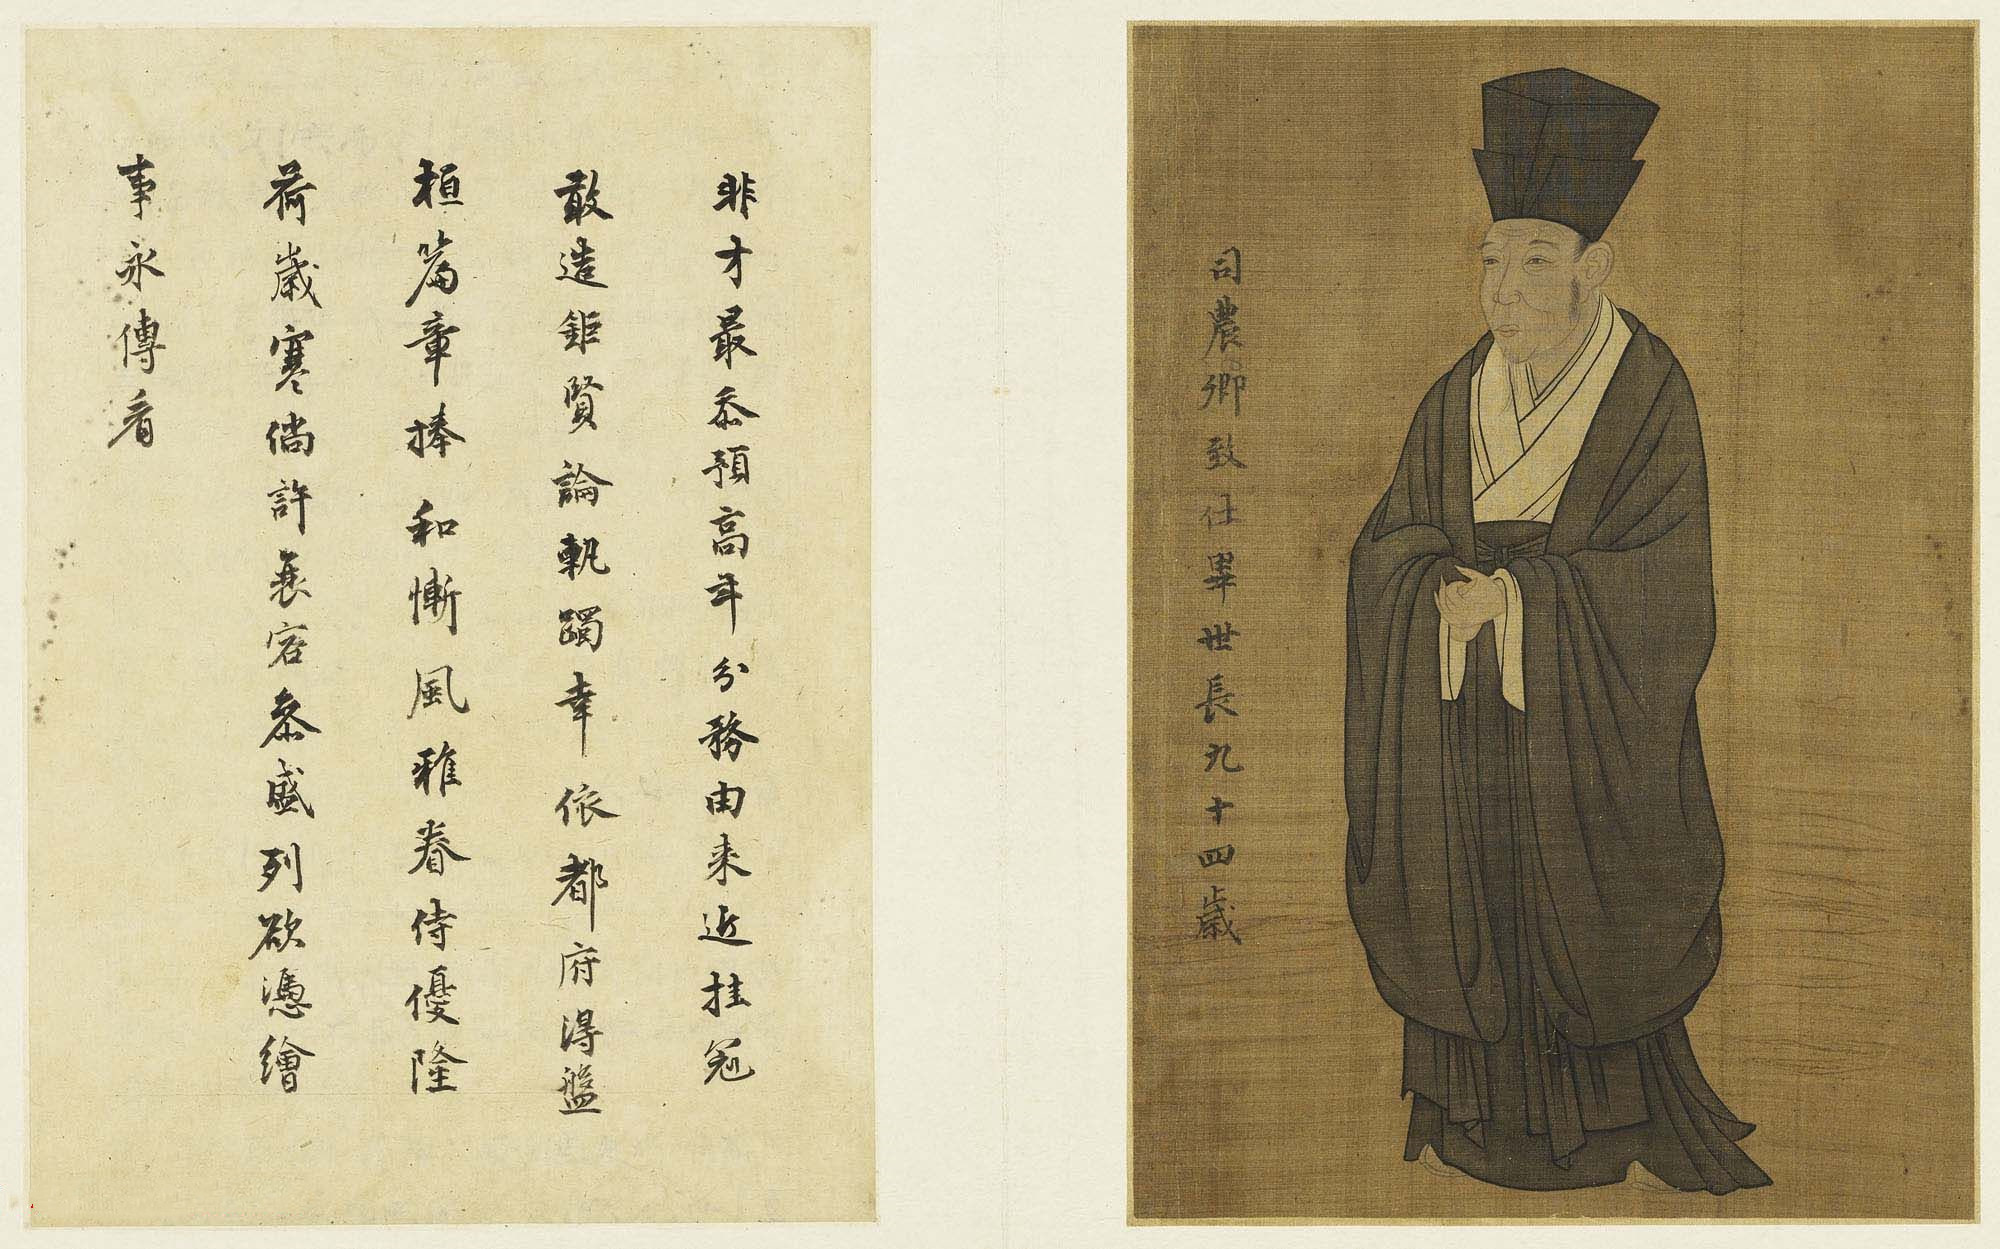 司農卿致仕畢世長九十四歲
非才最忝預高年分務由来近挂冠
敢造鉅賢論軌躅幸依都府得盤
桓篇章捧和慚風雅眷待優隆
荷歲寒倘許衰容叅盛列欲憑繪
事永傳看